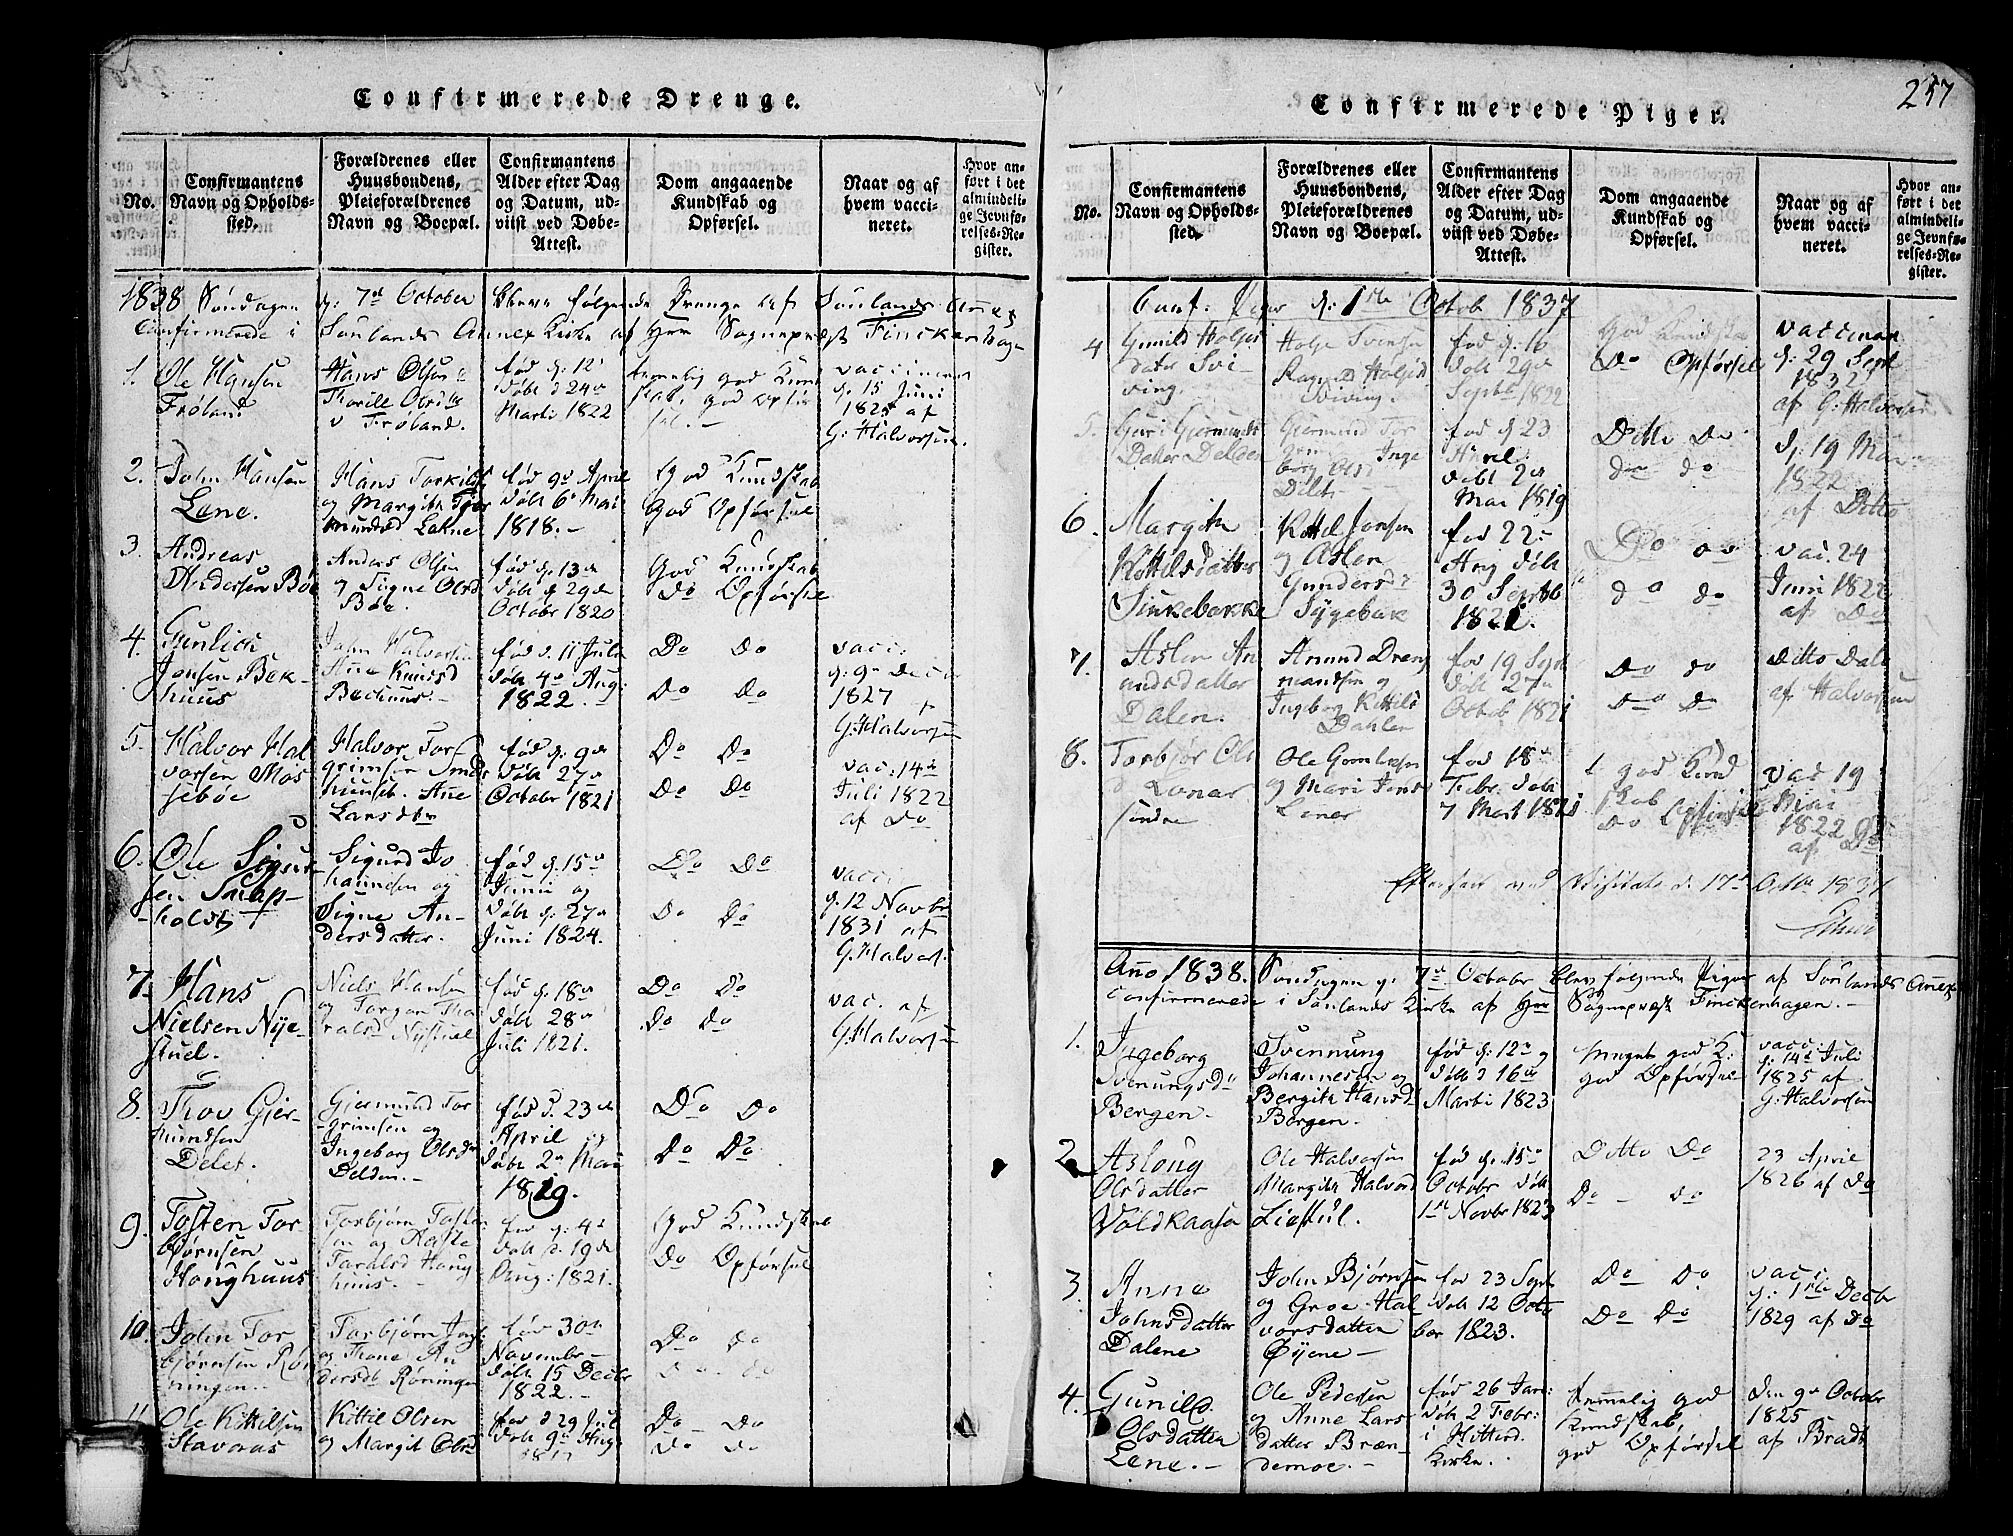 Confirmerede Drenge.
No.
Confirmantens
Navn og Opholds-
sted.
Forældrenes eller
Huusbondens,
Pleieforældrenes
Navn og Boepæl.
Confirmantens
Alder efter Dag
og Datum, ud-
viist ved Døbe-
Attest.
Dom angaaende
Kundskab og
Opførsel.
Naar og af
hvem vacci-
neret.
Hvor an-
ført i det
almindeli-
ge Jevnfø-
relses-Re-
gister.
1838 Søndagen d: 7de October bleve følgende Drenge af Soulands Annex
Confirmerede i Soulands Annex Kirke af Herr Sognepræst Finckenhagen
1. Ole Hansen
Frøland
Hans Olsen
Torille Olsd
Frøland.
fød d: 12
døbt d 24de
Marti 1822
temmelig god Kund
skab, god Opfør
sel. -
vaccineret
d: 15 Juni
1825 af
G: Halvorsen.
2. John Hansen
Lene.
Hans Torkilds
og Margith Gjer
mundsd Lehne
fød 9de April
døbt 6 Mai
1818. -
God Kundskab
God Opførsel
3. Andreas
Andersen Bøe
Anders Olsen
og Signe Olsd
Bøe.
fød d. 13de
døbt d 29de
October 1820
God Kundskab
Do Opførsel
4. Gunlich
Jonsen Bek-
huus
John Halvorsen
Ane Knudsd
Bechuus. -
fød d. 11 Juli
døbt 4de Aug:
1822. -
Do Do
Do Do
vacc:
d: 9de Dec
1827
G: Halvorsen
5. Halvor Hal
vorsen Mos
sebøe
Halvor Tor
grimsen
Ane
Larsdtr
fød d: 9de
døbt 27de
October 1821
Do Do
Do Do
vac: 14de
Juli 1822
af Do
6. Ole Sigur
sen Snap-
holst
Sigurd Jo
hannesen og
Signe An-
dersdatter.
fød d: 15de
Junii og
døbt d: 27de
Juni 1824.
Do Do
Do Do
vacc:
d: 12 Novbr
1831 af
G. Halvors.
7. Hans
Nielsen Nye-
stuel.
Niels Hansen
og Torgon Tho
ralsd Nystuel
fød d: 18de
døbt 28de
Juli 1821.
Do Do
Do Do
vac. af
G: Halvorsen
8. Thov Gjer-
mundsen
Delet.
Gjermund Tor
grimsen og
Ingeborg Olsdr
Delden. -
fød d. 23de
April og
døbt 2de Mai
1819.
Do Do
Do Do
9. Tosten Tor
bjørnsen
Honghuus
Torbjørn Toste
sen og Aaste
Taralsd Hong
huus. -
fød d: 4de
døbt d. 19de
Aug: 1821.
God Kundskab
Do Opførsel
10. John Tor
bjørnsen Røn
ningen. -
Torbjørn Jons
og Thone An
dersdt Røningen
fød 30de
Novembr -
døbt 15 Decbr
1822. -
Do do
11. Ole Kittilsen
Stavaas
Kittil Olsen
og Margit Olsd
fød d 29 Jul
døbt 9de Aug
Do Do
Do Do
257
Confirmerede Piger.
No.
Confirmantens
Navn og Opholds-
sted.
Forældrenes eller
Huusbondens,
Pleieforældrenes
Navn og Boepæl.
Confirmantens
Alder efter Dag
og Datum, ud-
viist ved Døbe-
Attest.
Dom angaaende
Kundskab og
Opførsel.
Naar og af
hvem vacci-
neret.
Hvor an-
ført i det
almindeli-
ge Jevnfø-
relses-Re-
gister.
Conf: Piger d: 1ste Octob 1837
4 Gunild Holjes
dater Svi-
ving.
Holje Svensen
Ragnild Holjesd
Sviving.
fød d: 16
døbt 29de
Septbr 1822
God Kundska
Do Opførsel
vaccineret
d: 29 Sept
1832
af G: Halvorsen
5. Guri Gjermunds
Datter Delden
Gjermund Tor
grim Inge
borg Ols
Delet
fød d 23
April
døbt 2de
Mai 1819
Ditto Do
do do
d: 19 Mai
1822
af Ditto
6. Margith
Kittelsdatter
Sinkebakke
Kittel Jonsen
og Aslen
Gundersd
Sygebak
fød 22
Aug døbt
30 Septb
1821.
Do do
do do
vac. 24
Juni 1822
af Do
7. Aslen An
undsdatter
Dalen.
Anund Dreng
mandsen og
Ingeborg Kittilsd
Dahlen
fød 19 Sept
døbt 27de
Octob 1821
Do do
Do Do
Ditto Dat
af Halvorsen
8. Torbjør Ols
d Lonar
søndre
Ole Gunlecksen
og Mari Jons
Loner
fød 18de
Febr. døbt
7 Mart 1821
t god Kund
skab
Do Opførsel
vac 19
Mai
1822
af Do
Efterseet ved Visitats d. 17de Octbr 1837
Ano 1838. Søndagen d: 7de October blev følgende Piger af Soulands Anex
confirmerede i Soulands Kirke af Hrr Sognepræst Finckenhagen. -
1. Ingeborg
Svenungsdr
Bergen -
Svennung
Johannesen og
Bergith Hansd
Bergen -
fød d: 12te og
døbt d 16de
Marti 1823
Meget god K:
god Opførsel
vacc:
d: 14de Juli
1825 af
G: Halvorsen
2. Aslaug
Olsdatter
Voldkaasa
Ole Halvorsen
Margith Halvord
Liestul.
fød d: 15de
October døbt
1ste Novbr 1823
Ditto Do
Do - do
23 April
1826 af Do
3. Anne
Johnsdatter
Dalene
John Bjørnsen
og Groe Hal
vorsdatter
Øyene -
fød 23 Sept
døbt 12 Octo
ber 1823.
Do Do
Do Do
vacc:
d: 1ste Decbr
1829 af Do
4. Gunild
Olsdatter
Lene. -
Ole Pedersen
og Anne Lars
datter Bræn
demoe. -
fød 26 Jan:
døbt 2 Febr:
i Hitterd.
Kirke.
temmelig god
Kundskab,
god Opførsel
den 9de Octobr
1825
af Bradt